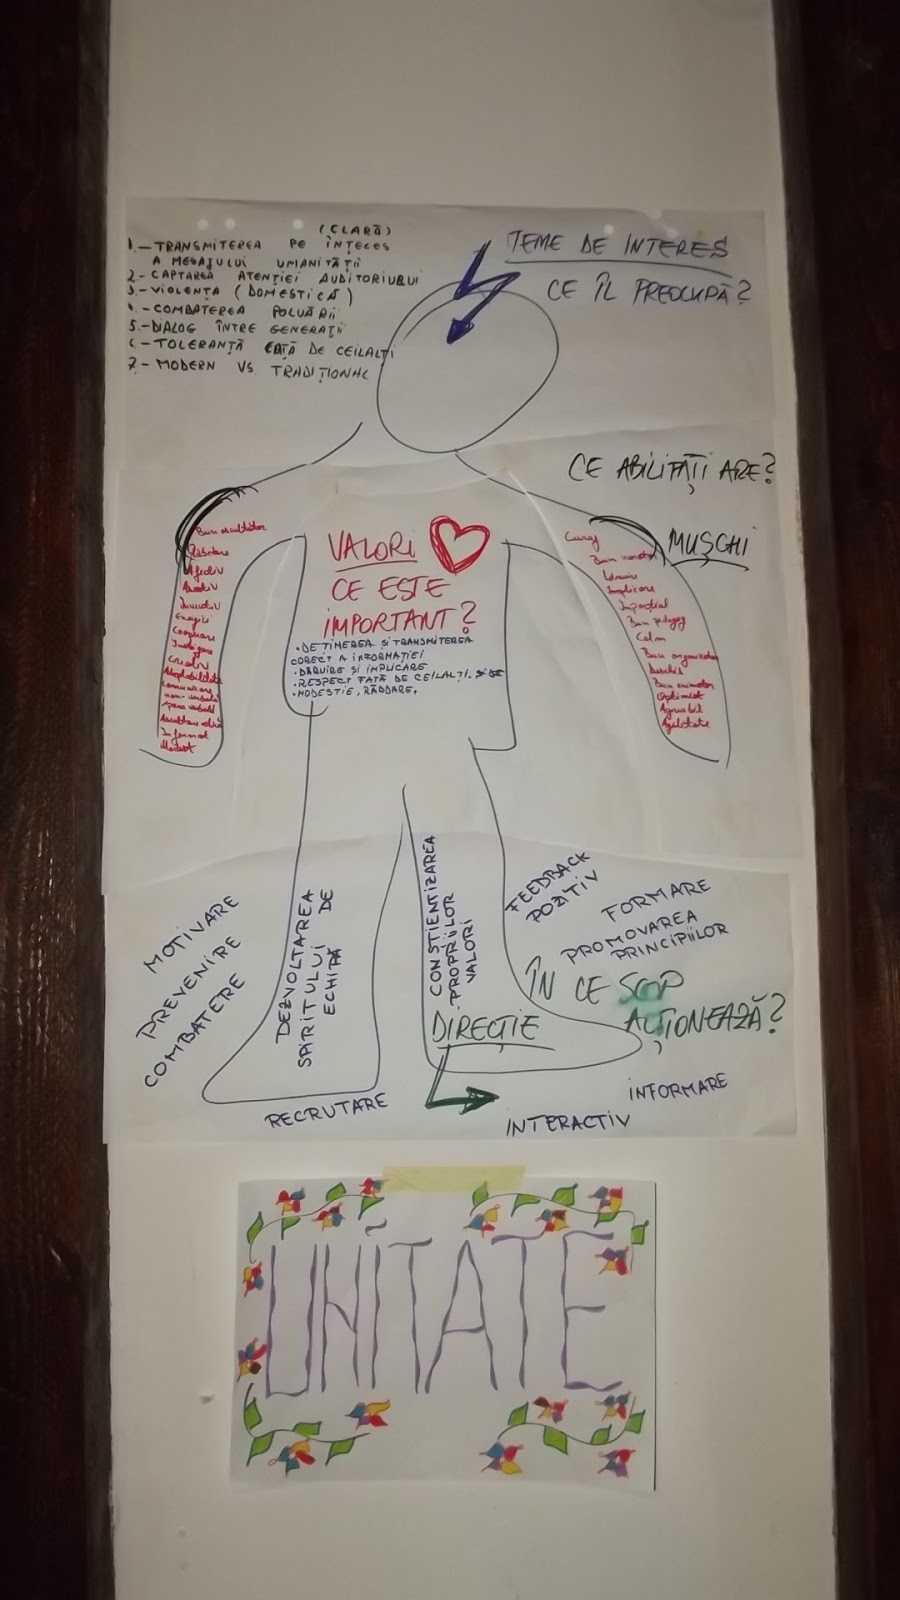 (CLARĂ)
1.- TRANSMITEREA PE ÎNȚELES
A MESAJULUI UMANITĂȚII
2.- CAPTAREA ATENȚIEI AUDITORIULUI
3.- VIOLENȚA (DOMESTICĂ)
4.- COMBATEREA POLUĂRII
5.- DIALOG ÎNTRE GENERAȚII
6.- TOLERANȚĂ FAȚĂ DE CEILALȚI
7.- MODERN VS. TRADIȚIONAL
TEME DE INTERES
CE ÎL PREOCUPĂ?
CE ABILITĂȚI ARE?
MUȘCHI
Bun ascultător
Răbdare
Afectiv
Inventiv
Energic
Cooperare
Creativ
Adaptabilitate
Comunicare
non-verbală
Ascultare activă
Informat
Modest
VALORI
CE ESTE
IMPORTANT?
• DEȚINEREA ȘI TRANSMITEREA
CORECT A INFORMAȚIEI
• DĂRUIRE ȘI IMPLICARE
• RESPECT FAȚĂ DE CEILALȚI. ȘI DE
• MODESTIE, RĂBDARE.
Curaj
Implicare
Imparțial
Bun pedagog
Calm
Bun organizator
Deschis
Bun animator
Optimist
Agreabil
Agilitate
MOTIVARE
PREVENIRE
COMBATERE
DEZVOLTAREA
SPIRITULUI DE
ECHIPĂ
CONȘTIENTIZAREA
PROPRIILOR
VALORI
FEEDBACK
POZITIV
FORMARE
PROMOVAREA
PRINCIPIILOR
ÎN CE SCOP
ACȚIONEAZĂ?
DIRECȚIE
RECRUTARE
INTERACTIV
INFORMARE
UNITATE